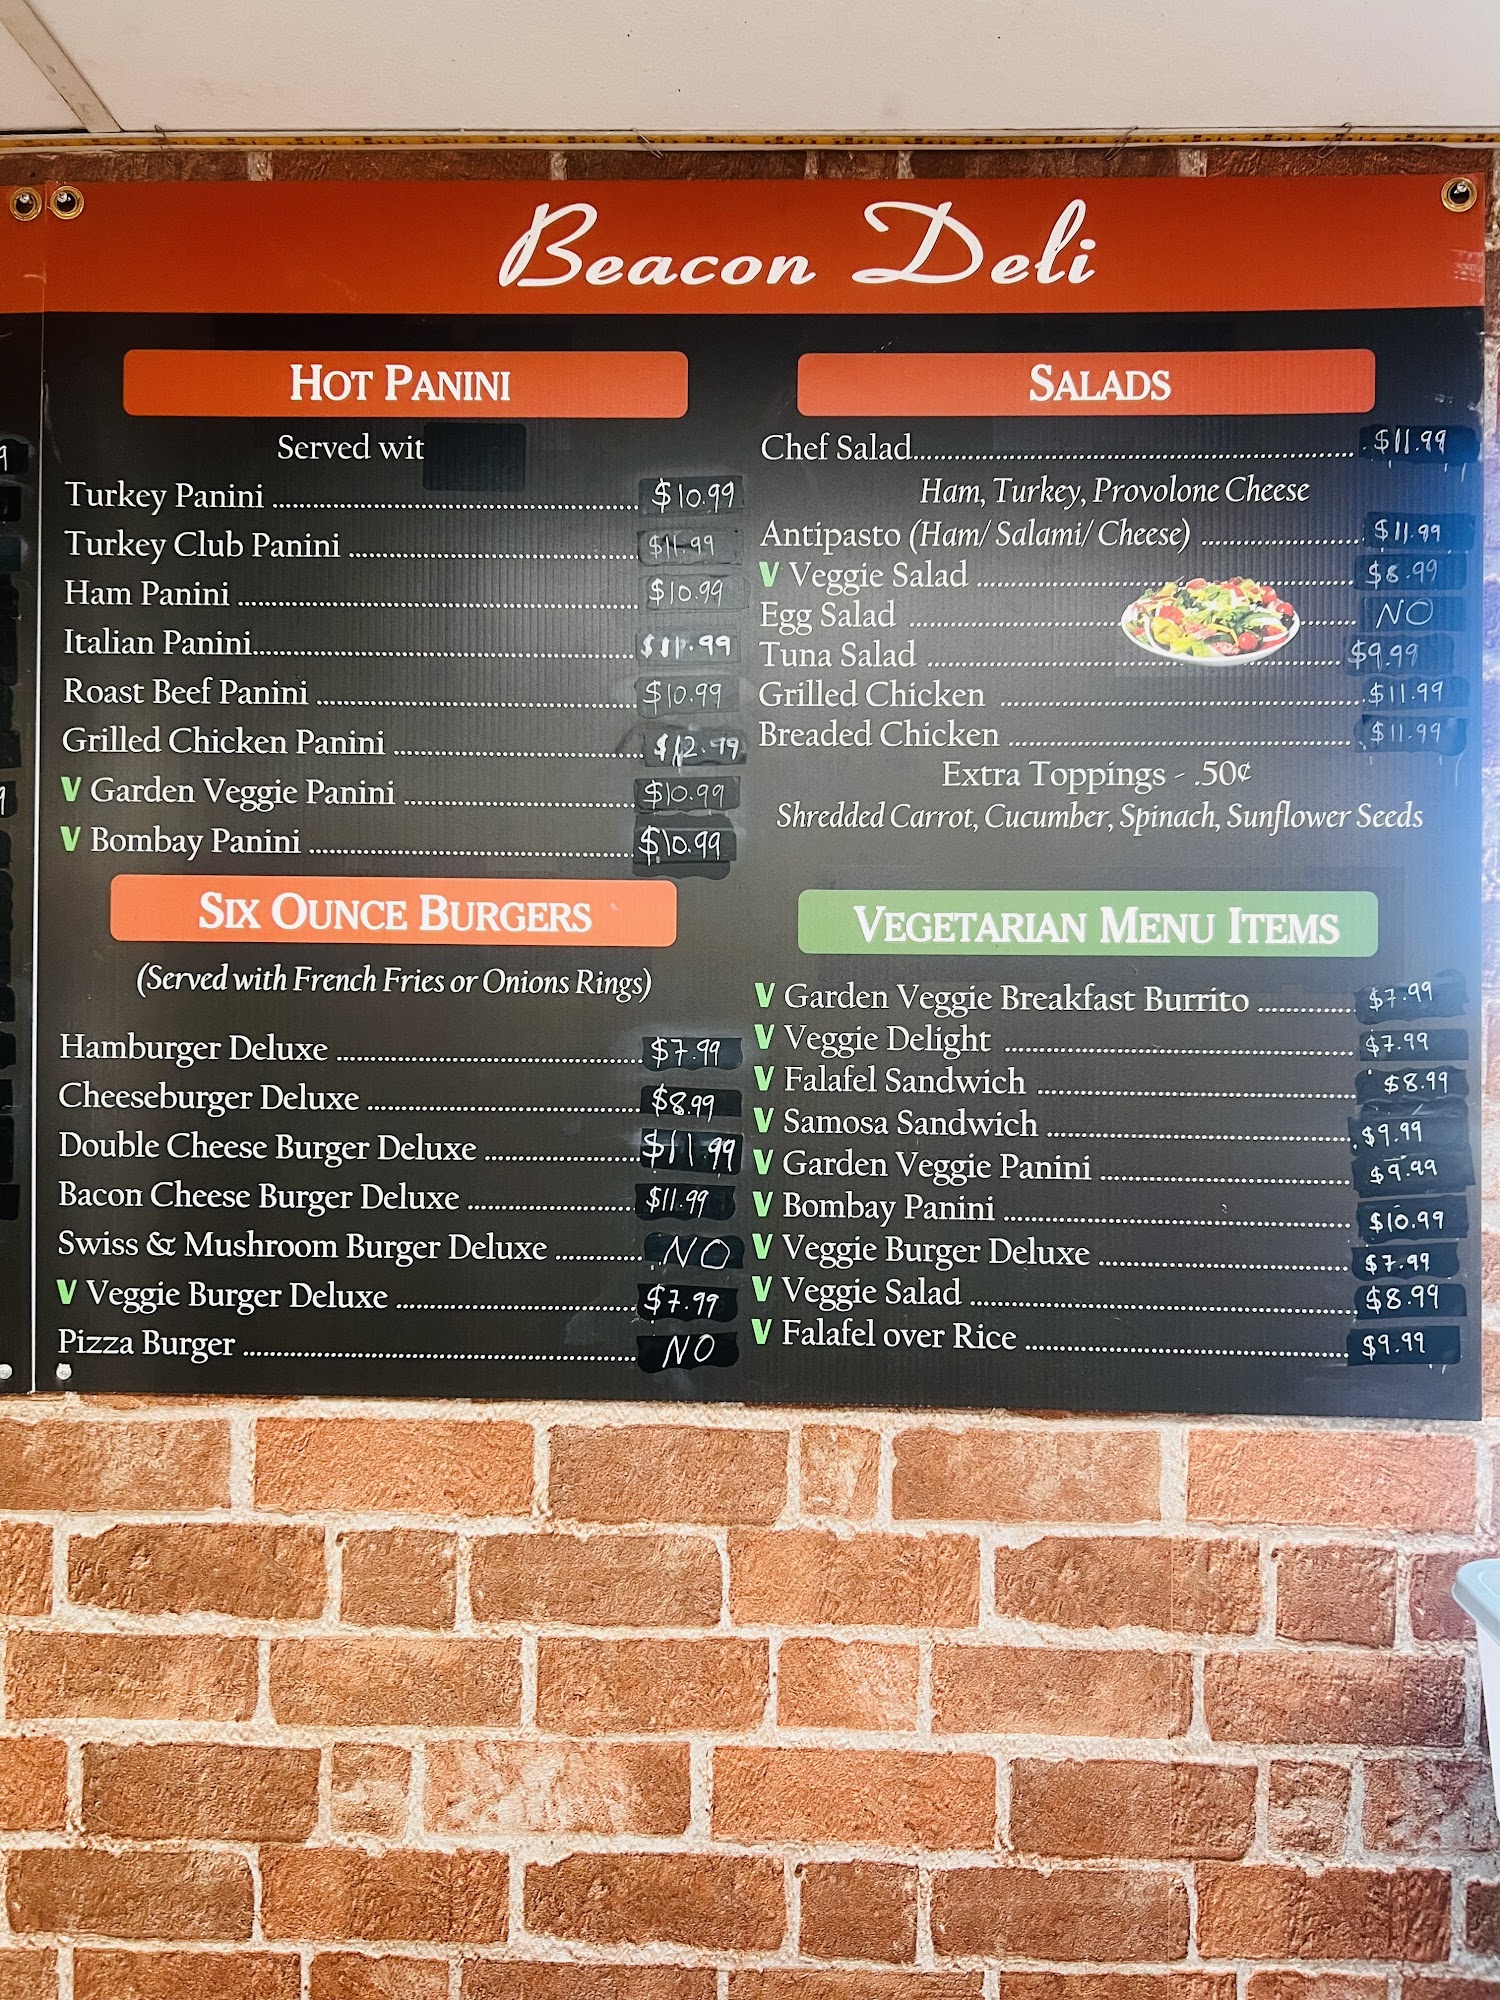 Beacon Deli
HOT PANINI
Served wit
Turkey Panini $10.99
Turkey Club Panini $11.99
Ham Panini $10.99
Italian Panini $11.99
Roast Beef Panini $10.99
Grilled Chicken Panini $12.99
V Garden Veggie Panini $10.99
V Bombay Panini $10.99
SIX OUNCE BURGERS
(Served with French Fries or Onions Rings)
Hamburger Deluxe $7.99
Cheeseburger Deluxe $8.99
Double Cheese Burger Deluxe $11.99
Bacon Cheese Burger Deluxe $11.99
Swiss & Mushroom Burger Deluxe NO
V Veggie Burger Deluxe $7.99
Pizza Burger NO
SALADS
Chef Salad $11.99
Ham, Turkey, Provolone Cheese
Antipasto (Ham/ Salami/ Cheese) $11.99
V Veggie Salad $8.99
Egg Salad NO
Tuna Salad $9.99
Grilled Chicken $11.99
Breaded Chicken $11.99
Extra Toppings - .50¢
Shredded Carrot, Cucumber, Spinach, Sunflower Seeds
VEGETARIAN MENU ITEMS
V Garden Veggie Breakfast Burrito $7.99
V Veggie Delight $7.99
V Falafel Sandwich $8.99
V Samosa Sandwich $9.99
V Garden Veggie Panini $9.99
V Bombay Panini $10.99
V Veggie Burger Deluxe $7.99
V Veggie Salad $8.99
V Falafel over Rice $9.99